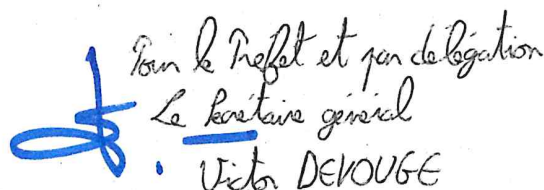 Pour le Préfet et par délégation
Le Secrétaire général
Victor DEVOUGE